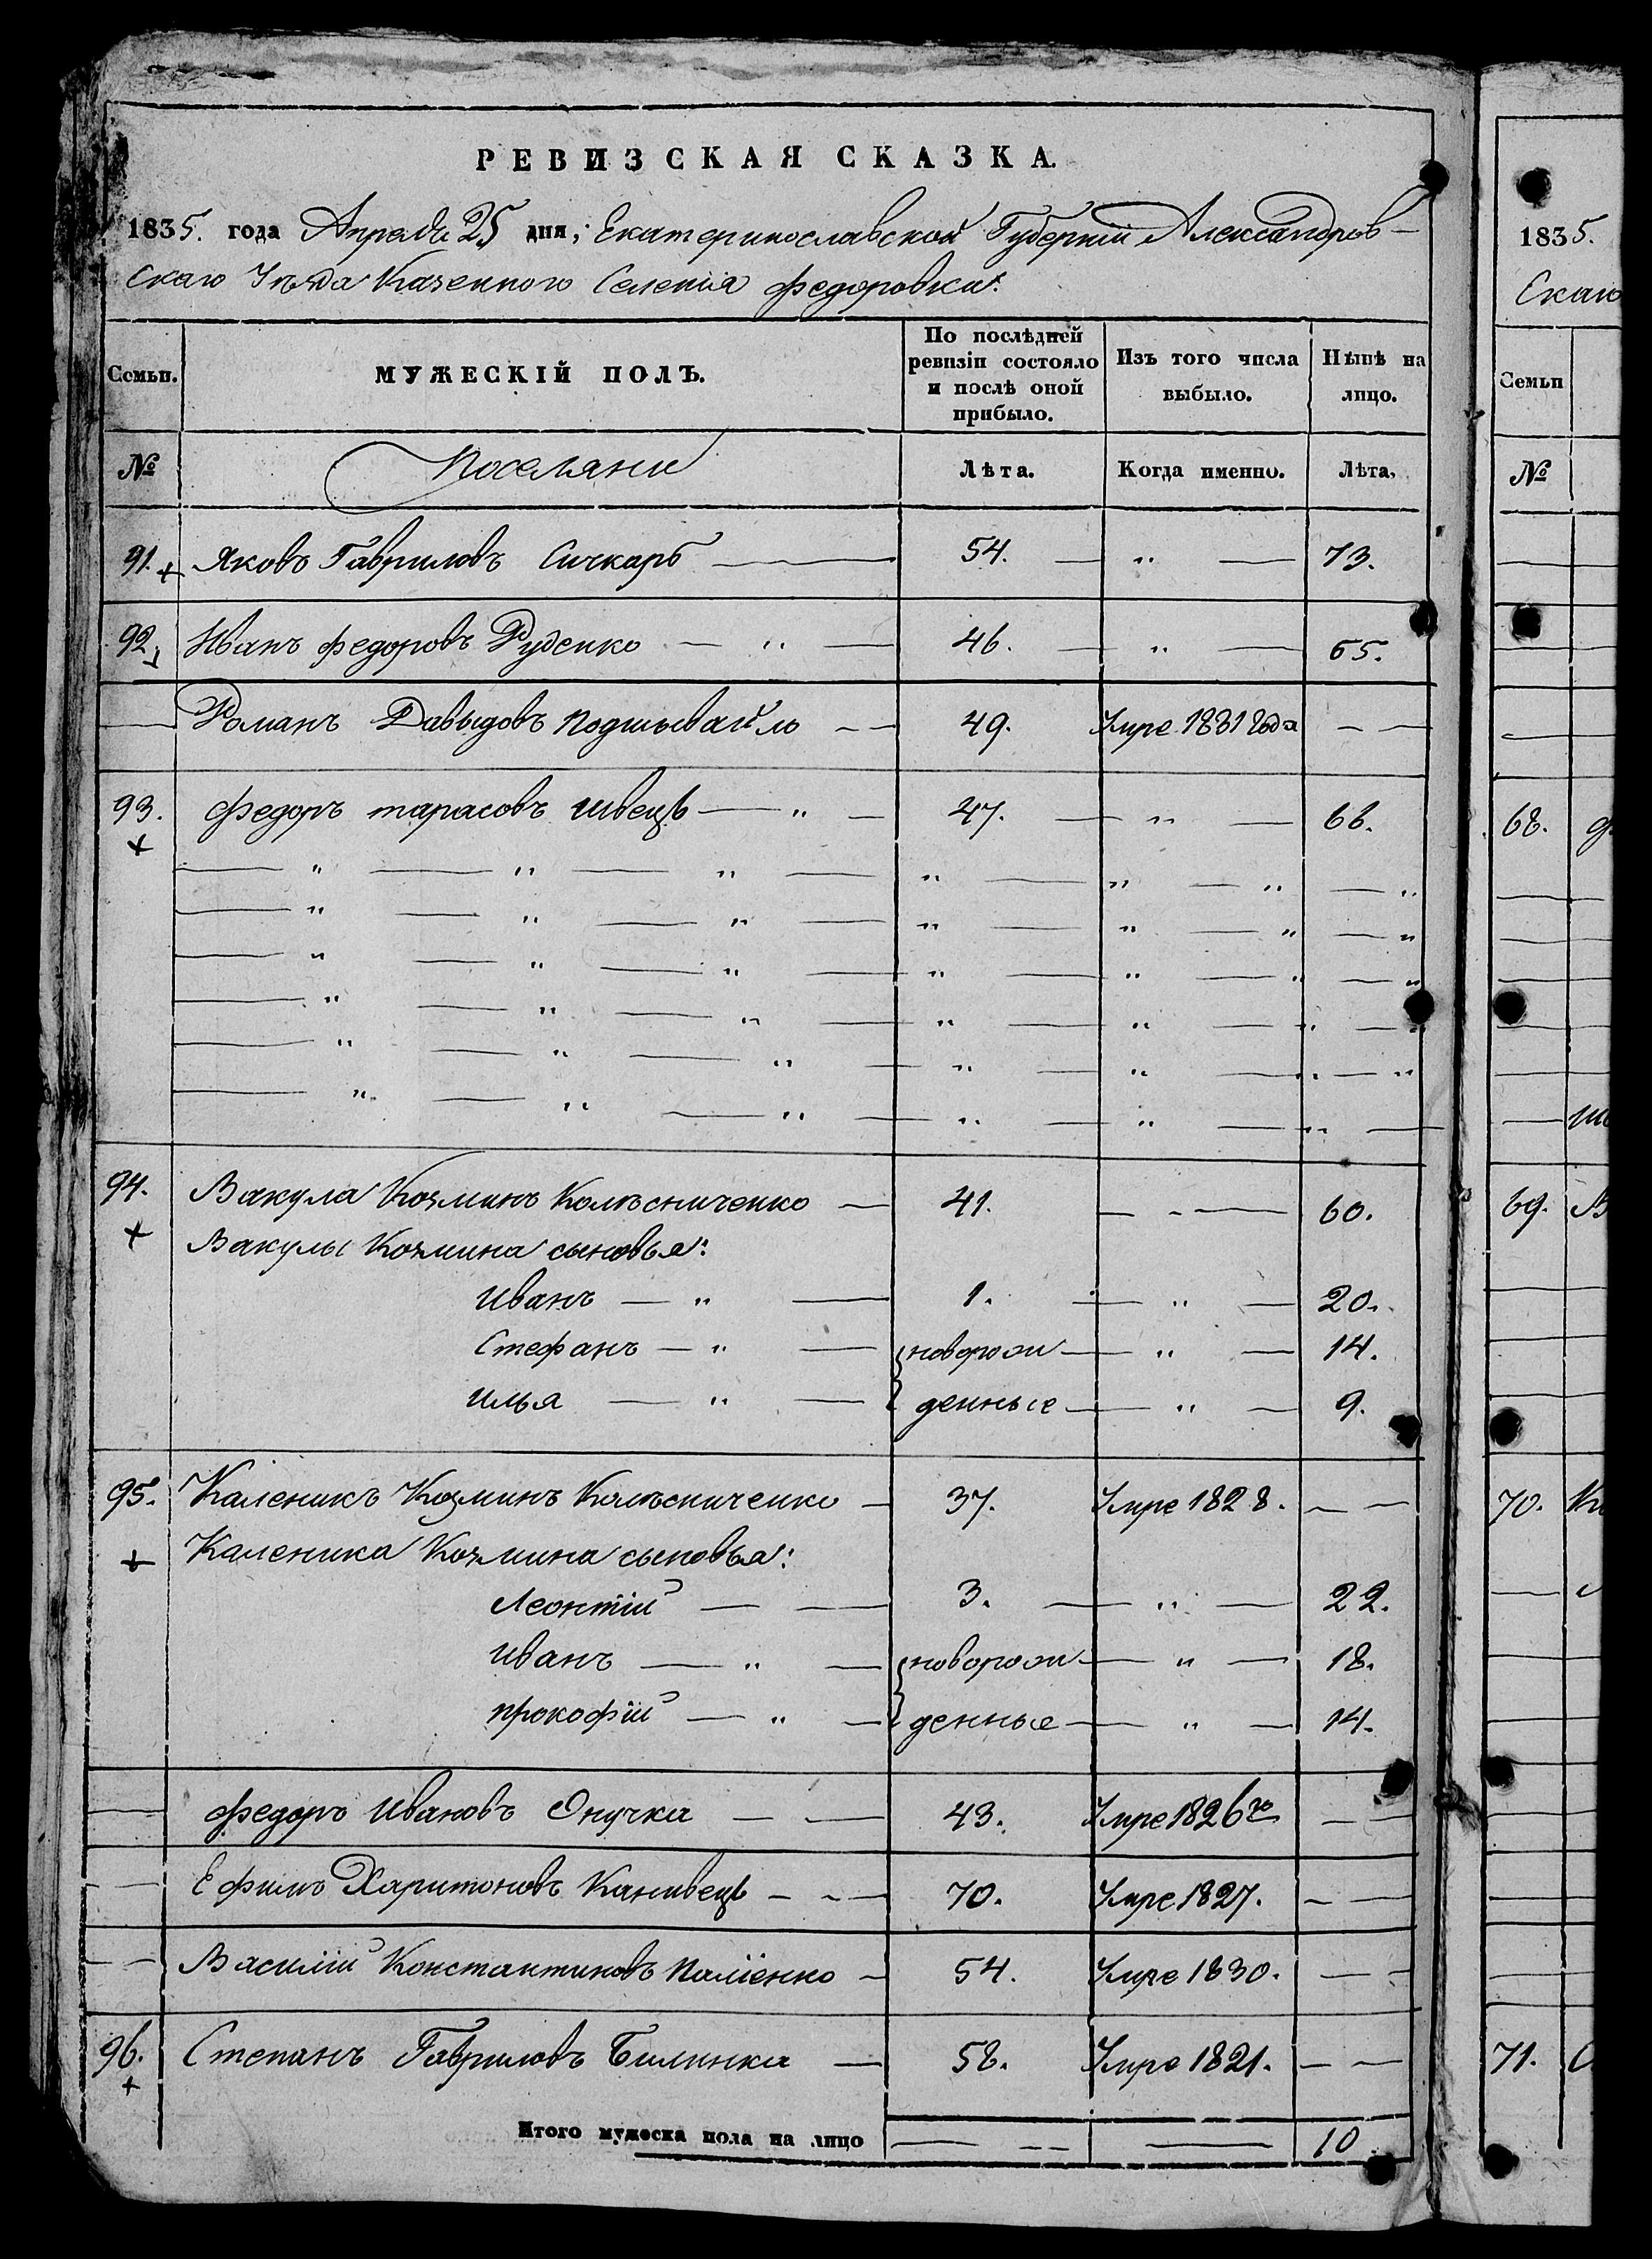 РЕВИЗСКАЯ СКАЗКА.
1835. года Апреля 25 дня; Екатеринославской Губернии Александров-
скаго Уѣзда Казенного Селенія Федоровки.
Семьи. МУЖЕСКІЙ ПОЛЪ. По послѣдней ревизіи состояло и послѣ оной прибыло. Изъ того числа выбыло. Нынѣ на лицо.
№ Поселяни Лѣта. Когда именно. Лѣта.
91. Яковъ Гавриловъ Сичкарь 54. 73.
92. Иванъ Федоровъ Руденко 46. 65.
Романъ Давыдовъ Подшывайло 49. Умре 1831 года
93. Федоръ Тарасовъ Швецъ 47. 66.
94. Вакула Козминъ Колѣсниченко 41. 60.
Вакулы Козмина сыновья:
Иванъ 1. 20.
Стефанъ новорож 14.
Илья денные 9.
95. Каленикъ Козминъ Колѣсниченко 37. Умре 1828.
Каленика Козмина сыновья:
Леонтій 3. 22.
Иванъ новорож 18.
Прокофій денные 14.
Федоръ Ивановъ Онучка 43. Умре 1826го
Ефимъ Харитоновъ Канивецъ 70. Умре 1827.
Василій Константиновъ Паліенко 54. Умре 1830.
96. Степанъ Гавриловъ Билинка 58. Умре 1821.
Итого мужеска пола на лицо 10
1835.
скаго
Семьи
№
68.
69.
70.
71.